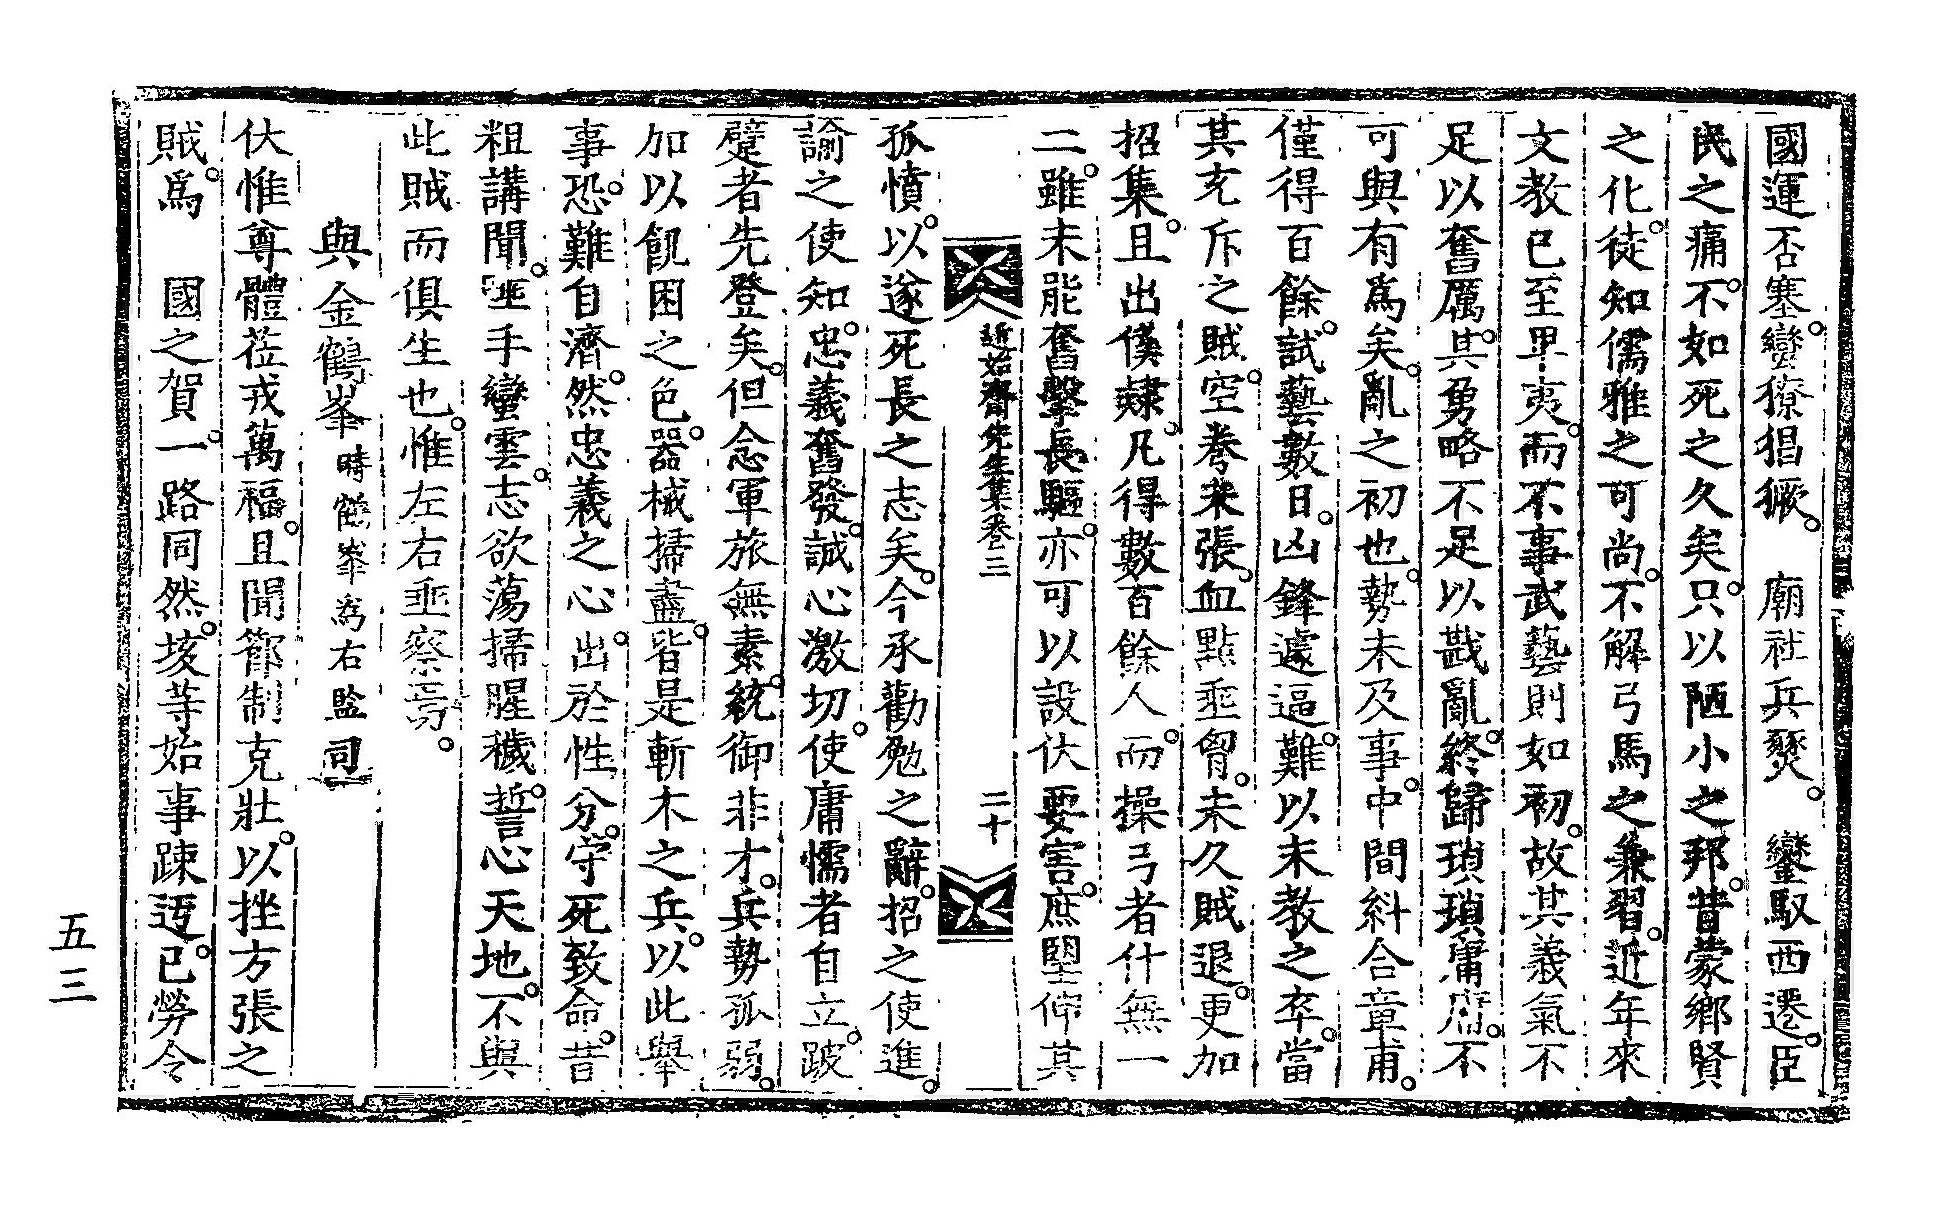 國運否塞。蠻獠猖獗。　廟社兵燹。　鑾馭西遷。臣
民之痛。不如死之久矣。只以陋小之邦。昔蒙鄕賢
之化。徒知儒雅之可尚。不解弓馬之兼習。近年來
文敎已至卑夷。而不事武藝則如初。故其義氣不
足以奮厲。其勇略不足以戡亂。終歸瑣瑣庸腐。不
可與有爲矣。亂之初也。勢未及事。中間糾合章甫。
僅得百餘。試藝數日。凶鋒遽逼。難以未敎之卒。當
其充斥之賊。空拳未張。血點垂胷。未久賊退。更加
招集。且出僕隷。凡得數百餘人。而操弓者什無一
二。雖未能奮擊長驅。亦可以設伏要害。庶堲伸其
近始齋先生集卷三　二十
孤憤。以遂死長之志矣。今承勸勉之辭。招之使進。
諭之使知。忠義奮發。誠心激切。使庸懦者自立。跛
躄者先登矣。但念軍旅無素。統御非才。兵勢孤弱。
加以飢困之色。器械掃盡。皆是斬木之兵。以此舉
事。恐難自濟。然忠義之心。出於性分。守死致命。昔
粗講聞。唾手蠻雲。志欲蕩掃腥穢。誓心天地。不與
此賊而俱生也。惟左右垂察焉。
與金鶴峯時鶴峯爲右監司
伏惟尊體莅戎萬福。且聞節制克壯。以挫方張之
賊。爲　國之賀。一路同然。垓等始事踈迃。已勞令
五三